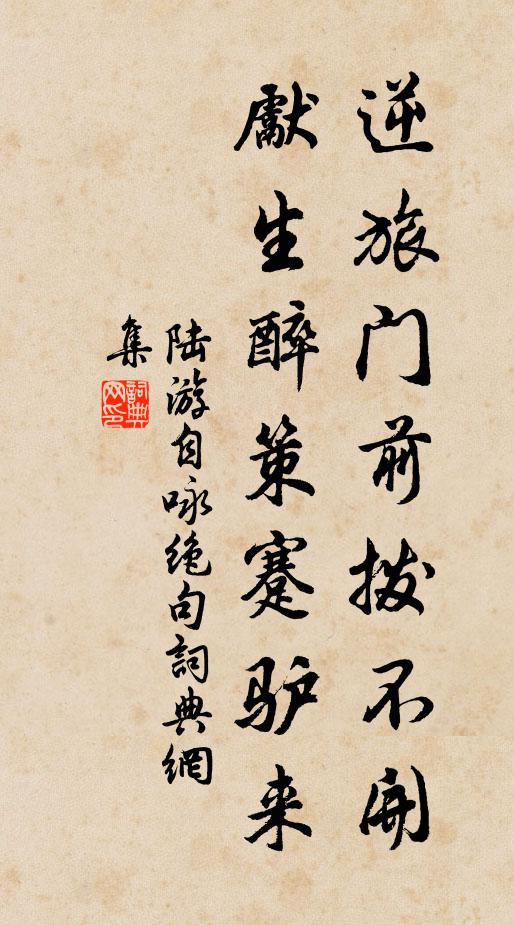 逆旅门前拨不开
献生醉策蹇驴来
陆游自咏绝句詞典網
集
詞典网印